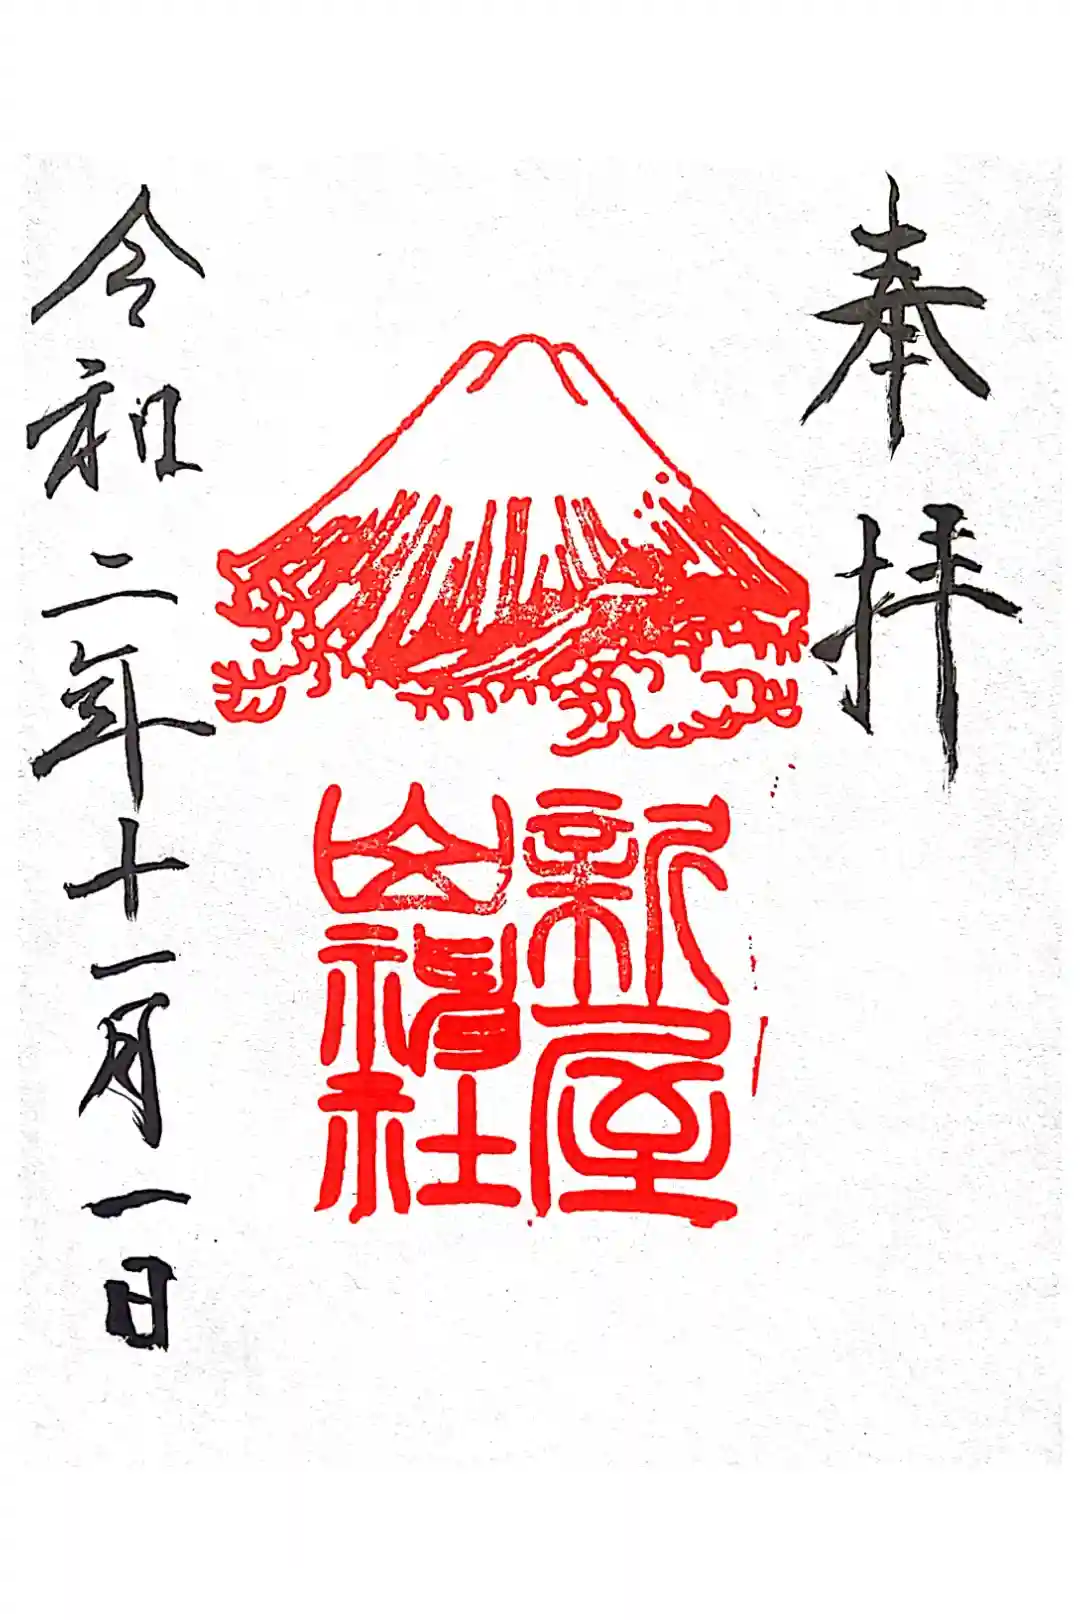 奉拝
新屋
山神社
令和二年十一月一日